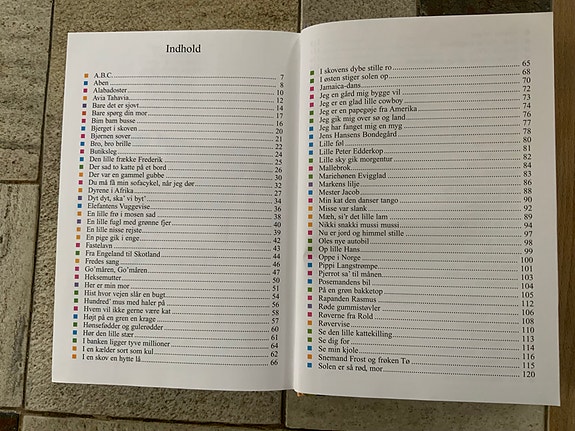 Indhold
A.B.C. 7
Aben 8
Alabadoster 10
Avia Tahavia 12
Bare det er sjovt 14
Bare spørg din mor 17
Bim bam busse 16
Bjerget i skoven 20
Bjørnen sover 21
Bro, bro brille 22
Butiksleg 24
Den lille frække Frederik 25
Der sad to katte på et bord 26
Der var en gammel gubbe 30
Du må få min sofacykel, når jeg dør 32
Dyrene i Afrika 27
Dyt dyt, ska' vi byt' 34
Elefantens Vuggevise 36
En lille frø i mosen sad 38
En lille fugl med grønne fjer 40
En lille nisse rejste 39
En pige gik i enge 42
Fastelavn 43
Fra Engeland til Skotland 44
Fredes sang 46
Go'måren, Go'måren 47
Heksemutter 50
Her er min mor 51
Hist hvor vejen slår en bugt 54
Hundred' mus med haler på 56
Hvem vil ikke gerne være kat 58
Højt på en gren en krage 57
Hønsefødder og gulerødder 60
Hør den lille stær 61
I banken ligger tyve millioner 64
I en kælder sort som kul 62
I en skov en hytte lå 66
I skovens dybe stille ro 65
I østen stiger solen op 68
Jamaica-dans 70
Jeg en gård mig bygge vil 72
Jeg er en glad lille cowboy 73
Jeg er en papegøje fra Amerika 74
Jeg gik mig over sø og land 76
Jeg har fanget mig en myg 77
Jens Hansens Bondegård 78
Lille føl 80
Lille Peter Edderkop 81
Lille sky gik morgentur 82
Mallebrok 84
Mariehønen Evigglad 83
Markens lilje 86
Mester Jacob 88
Min kat den danser tango 90
Misse var slank 92
Mæh, si'r det lille lam 89
Nikki snakki mussi mussi 94
Nu er jord og himmel stille 95
Oles nye autobil 98
Op lille Hans 99
Oppe i Norge 100
Pippi Langstrømpe 101
Pjerrot sa' til månen 103
Posemandens bil 104
På en grøn bakketop 105
Rapanden Rasmus 112
Røde gummistøvler 106
Røverne fra Rold 108
Røvervise 110
Se den lille kattekilling 113
Se dig for 114
Se min kjole 116
Snemand Frost og frøken Tø 115
Solen er så rød, mor 120